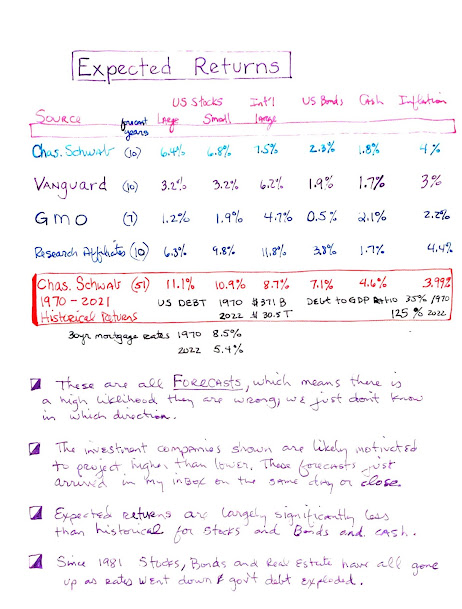 Expected Returns
US Stocks Int'l US Bonds Cash Inflation
Source forecast years Large Small Large
Chas. Schwab (10) 6.4% 6.8% 7.5% 2.3% 1.8% 4%
Vanguard (10) 3.2% 3.2% 6.2% 1.9% 1.7% 3%
GMO (7) 1.2% 1.9% 4.7% 0.5% 2.1% 2.2%
Research Affiliates (10) 6.3% 9.8% 11.8% 3.8% 1.7% 4.4%
Chas. Schwab (51) 11.1% 10.9% 8.7% 7.1% 4.6% 3.99%
1970 - 2021 US DEBT 1970 $371 B Debt to GDP Ratio 35% 1970
Historical Returns 2022 $30.5 T 125% 2022
30yr mortgage rates 1970 8.5%
2022 5.4%
These are all FORECASTS, which means there is
a high likelihood they are wrong, we just don't know
in which direction.
The investment companies shown are likely motivated
to project higher than lower. These forecasts just
arrived in my inbox on the same day or close
Expected returns are largely significantly less
than historical for stocks and Bonds and cash.
Since 1981 Stocks, Bonds and Real Estate have all gone
up as rates went down & gov't debt exploded.